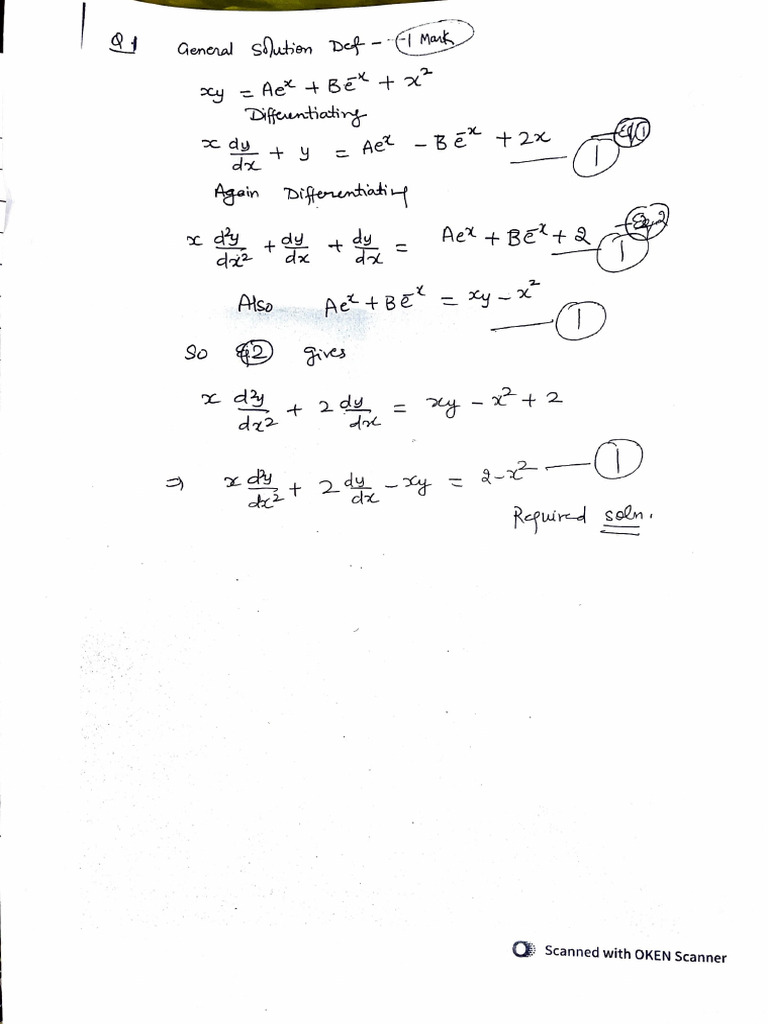 Q1 General Solution Def - 1 Mark
xy = Ae^x + Be^-x + x^2
Differentiating
x dy/dx + y = Ae^x - Be^-x + 2x — 1 Eq1
Again Differentiating
x d²y/dx² + dy/dx + dy/dx = Ae^x + Be^-x + 2 — 1 Eq 2
Also Ae^x + Be^-x = xy - x^2 — 1
So Eq2 gives
x d²y/dx² + 2 dy/dx = xy - x^2 + 2
⇒ x d²y/dx² + 2 dy/dx - xy = 2 - x^2 — 1
Required soln.
Scanned with OKEN Scanner